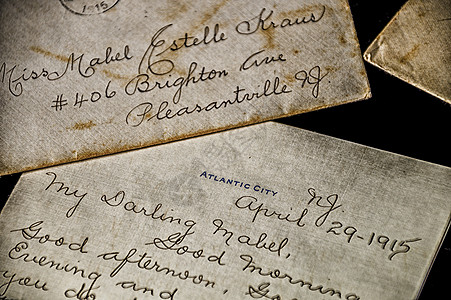 1-15
Miss Mabel Estelle Kraus
#406 Brighton Ave
Pleasantville NJ.
ATLANTIC CITY NJ.
April 29-1915
My Darling Mabel,
Good Morning
Good afternoon, Go
Evening and
you do